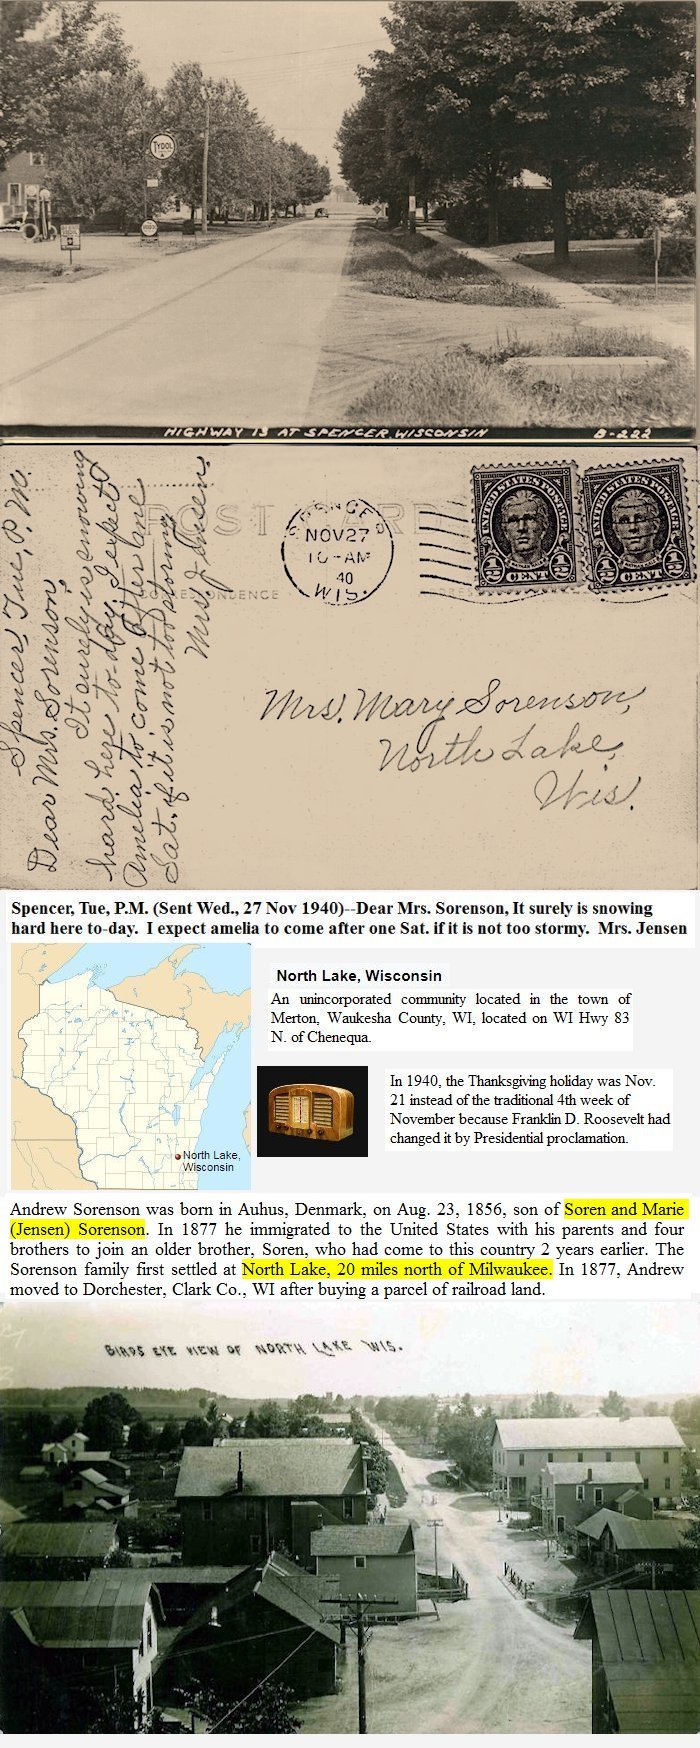 TYDOL
HIGHWAY 13 AT SPENCER, WISCONSIN
B-222
POST CARD
CORRESPONDENCE
NOV 27
10-AM
40
WIS.
UNITED STATES POSTAGE
1/2 CENT 1/2
UNITED STATES POSTAGE
1/2 CENT 1/2
Spencer, Tue, P.M.
Dear Mrs. Sorenson,
It surely is snowing
hard here to-day. I expect
Amelia to come after one
Sat. if it is not too stormy
Mrs. J Jensen,
Mrs. Mary Sorenson,
North Lake,
Wis.
Spencer, Tue, P.M. (Sent Wed., 27 Nov 1940)--Dear Mrs. Sorenson, It surely is snowing
hard here to-day.  I expect amelia to come after one Sat. if it is not too stormy.  Mrs. Jensen
North Lake, Wisconsin
An unincorporated community located in the town of
Merton, Waukesha County, WI, located on WI Hwy 83
N. of Chenequa.
In 1940, the Thanksgiving holiday was Nov.
21 instead of the traditional 4th week of
November because Franklin D. Roosevelt had
changed it by Presidential proclamation.
North Lake,
Wisconsin
Andrew Sorenson was born in Auhus, Denmark, on Aug. 23, 1856, son of Soren and Marie
(Jensen) Sorenson. In 1877 he immigrated to the United States with his parents and four
brothers to join an older brother, Soren, who had come to this country 2 years earlier. The
Sorenson family first settled at North Lake, 20 miles north of Milwaukee. In 1877, Andrew
moved to Dorchester, Clark Co., WI after buying a parcel of railroad land.
BIRDS EYE VIEW OF NORTH LAKE WIS.